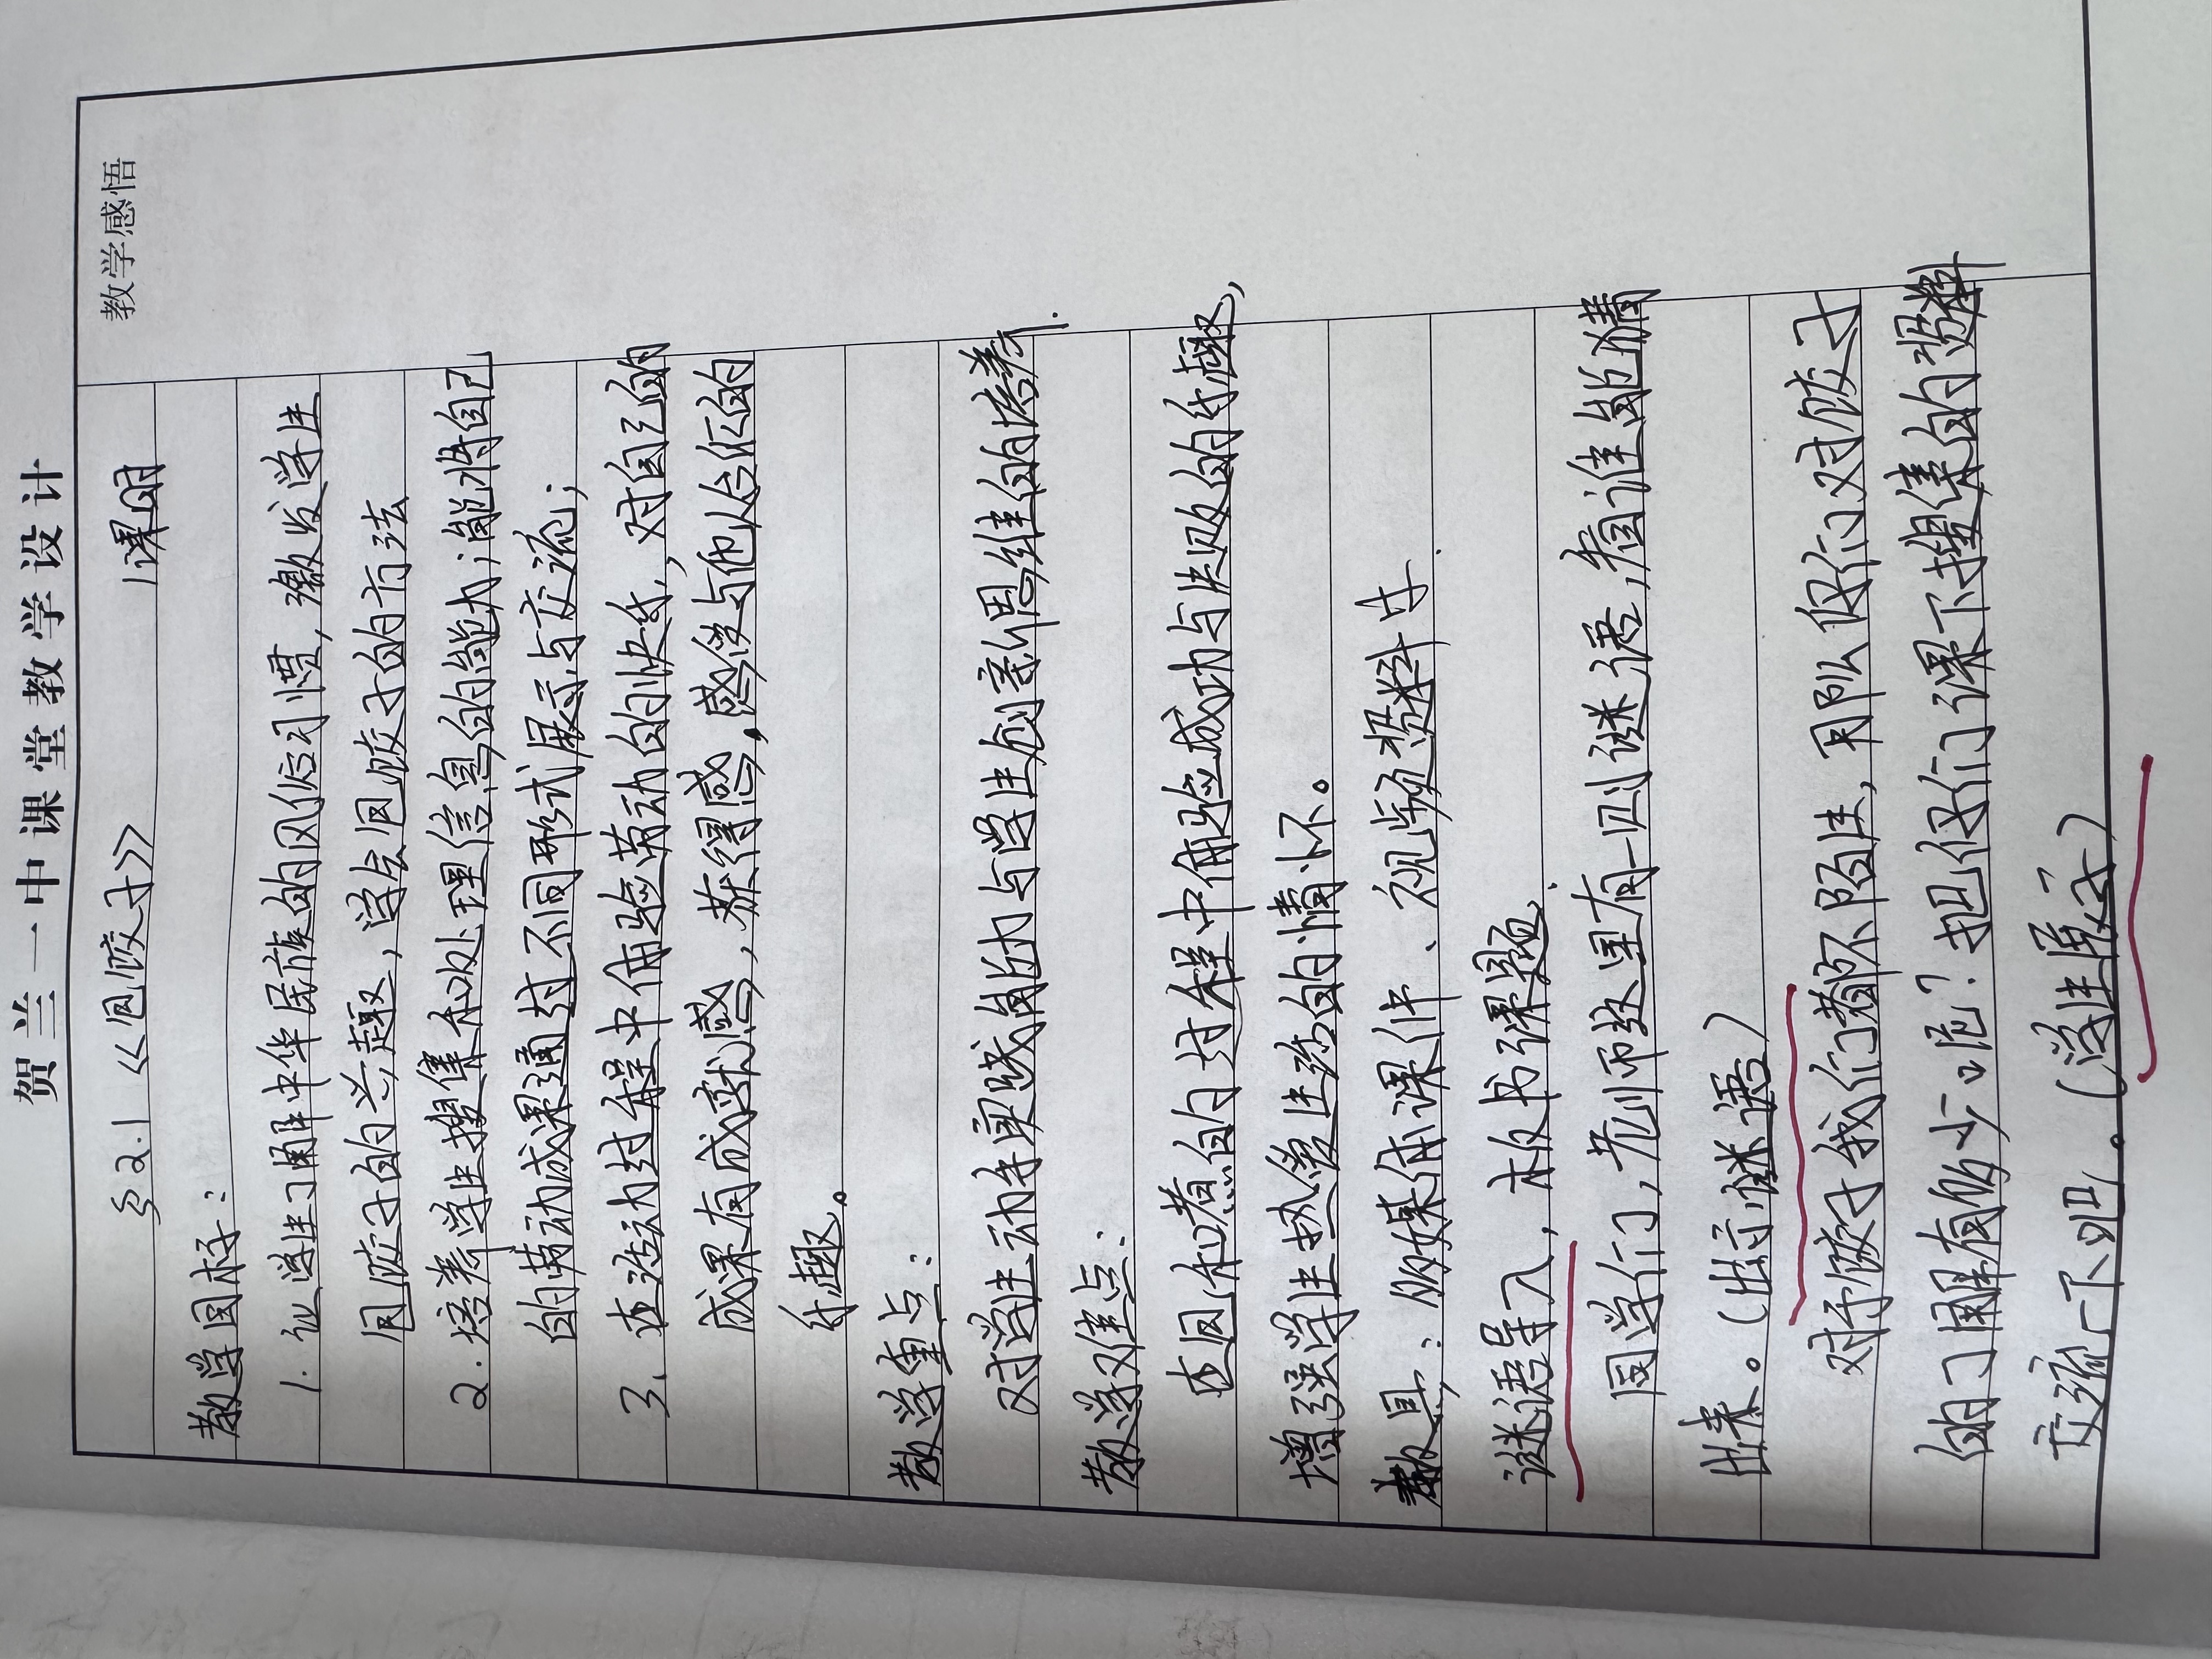 贺兰一中课堂教学设计
教学感悟
§2.1 《包饺子》 1课时
教学目标：
1. 让学生了解中华民族的风俗习惯，激发学生
包饺子的兴趣，学会包饺子的方法
2. 培养学生搜集和处理信息的能力；能将自己
的劳动成果通过不同形式展示与交流；
3. 在活动过程中体验劳动的快乐，对自己的
成果有成就感，获得感，感受与他人合作的
乐趣。
教学重点：
对学生动手实践能力与学生创新思维的培养.
教学难点：
在包和煮的过程中体验成功与失败的乐趣，
增强学生热爱生活的情怀。
教具：多媒体课件、视频资料等.
谜语导入，板书课题.
同学们，老师这里有一则谜语，看谁能猜
出来。（出示谜语）
对于饺子我们都不陌生，那么你们对饺子
的了解有多少呢？把你们课下搜集的资料
交流一下吧。（学生展示）